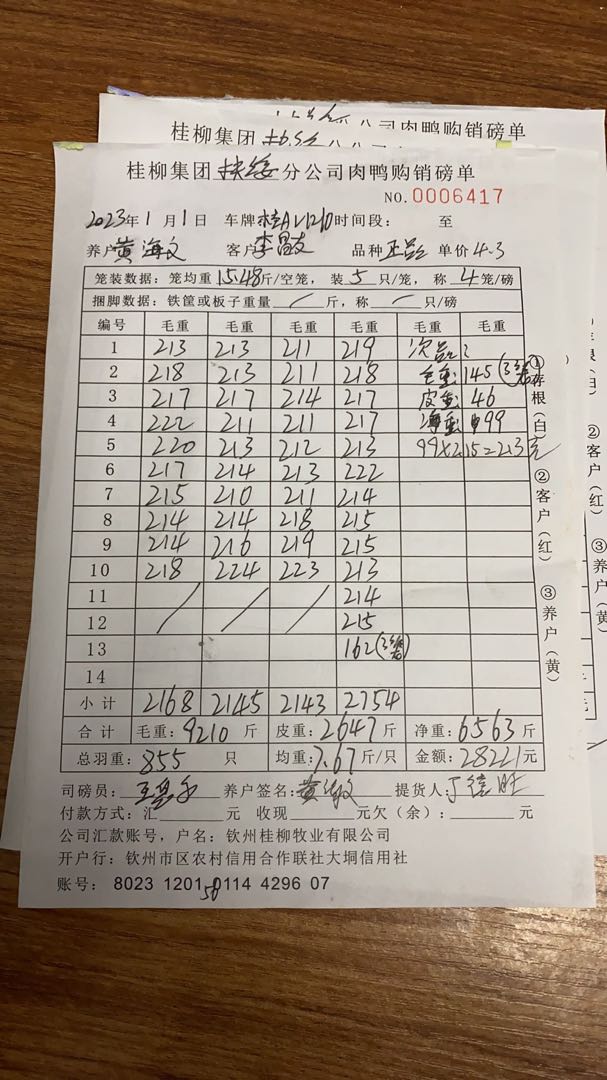 桂柳集团 分公司肉鸭购销磅单
桂柳集团扶绥分公司肉鸭购销磅单
NO.0006417
2023年1月1日 车牌 时间段: 至
养户黄海文 客户李昌友 品种 单价4.3
笼装数据:笼均重15.48斤/空笼,装5只/笼,称4笼/磅
捆脚数据:铁筐或板子重量/斤,称/只/磅
编号 毛重 毛重 毛重 毛重 毛重 毛重
1 213 213 211 219 次品:
2 218 213 211 218 毛重:145(3笼)
3 217 217 214 217 皮重:46
4 222 211 211 217 净重:99
5 220 213 212 213 99×2.15=213元
6 217 214 213 222
7 215 210 211 214
8 214 214 218 215
9 214 216 219 215
10 218 224 223 213
11 / / / 214
12 215
13 162(3笼)
14
小计 2168 2145 2143 2754
合计 毛重:9210斤 皮重:2647斤 净重:6563斤
总羽重:855只 均重:7.67斤/只 金额:28221元
司磅员: 养户签名:黄海文 提货人:丁德旺
付款方式:汇 元 收现 元欠(余): 元
公司汇款账号,户名:钦州桂柳牧业有限公司
开户行:钦州市区农村信用合作联社大垌信用社
账号: 8023 1201 0114 4296 07
50
①存根(白) ②客户(红) ③养户(黄)